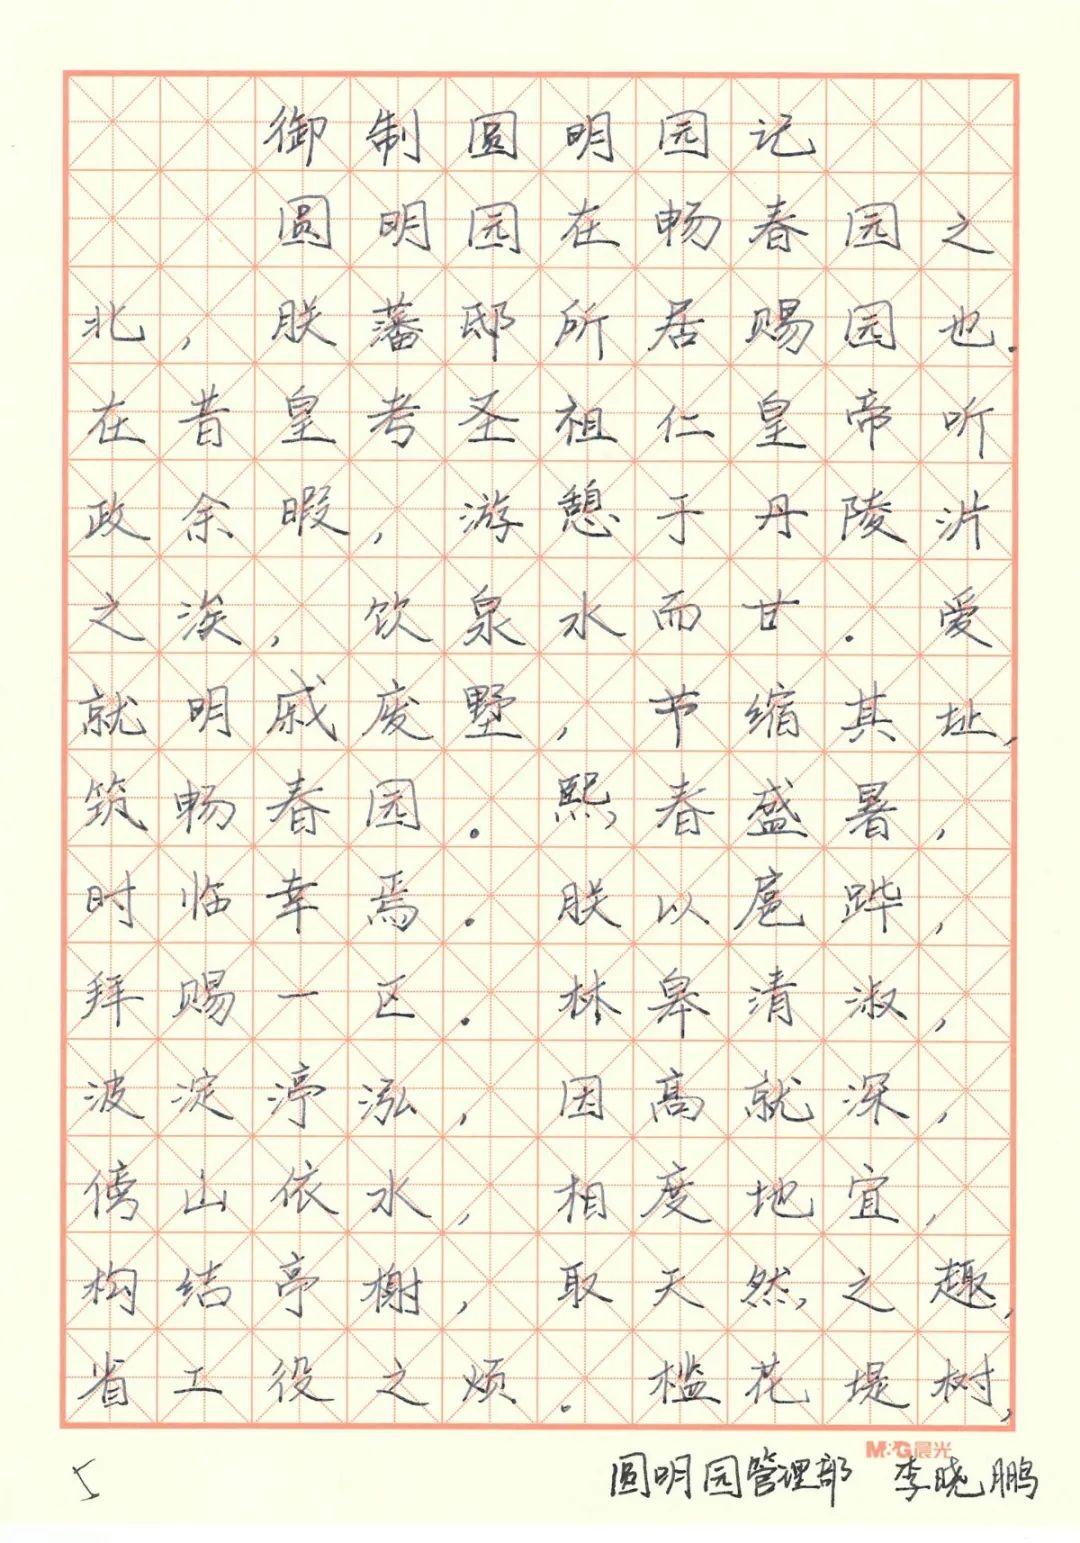 御制圆明园记
圆明园在畅春园之
北，朕藩邸所居赐园也.
在昔皇考圣祖仁皇帝听
政余暇，游憩于丹陵沜
之涘，饮泉水而甘.爰
就明戚废墅，节缩其址，
筑畅春园.熙春盛暑，
时临幸焉.朕以扈跸，
拜赐一区.林皋清淑，
波淀渟泓，因高就深，
傍山依水，相度地宜，
构结亭榭，取天然之趣，
省工役之烦.槛花堤树，
M&G晨光
5 圆明园管理部 李晓鹏